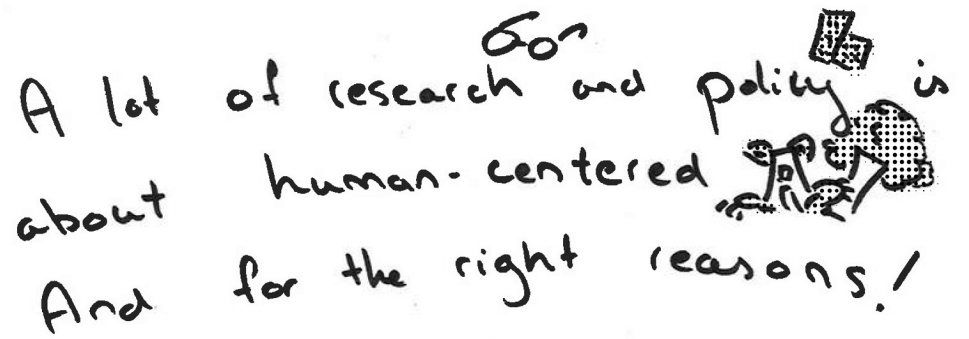 A lot of research and policy is
about human-centered
And for the right reasons!